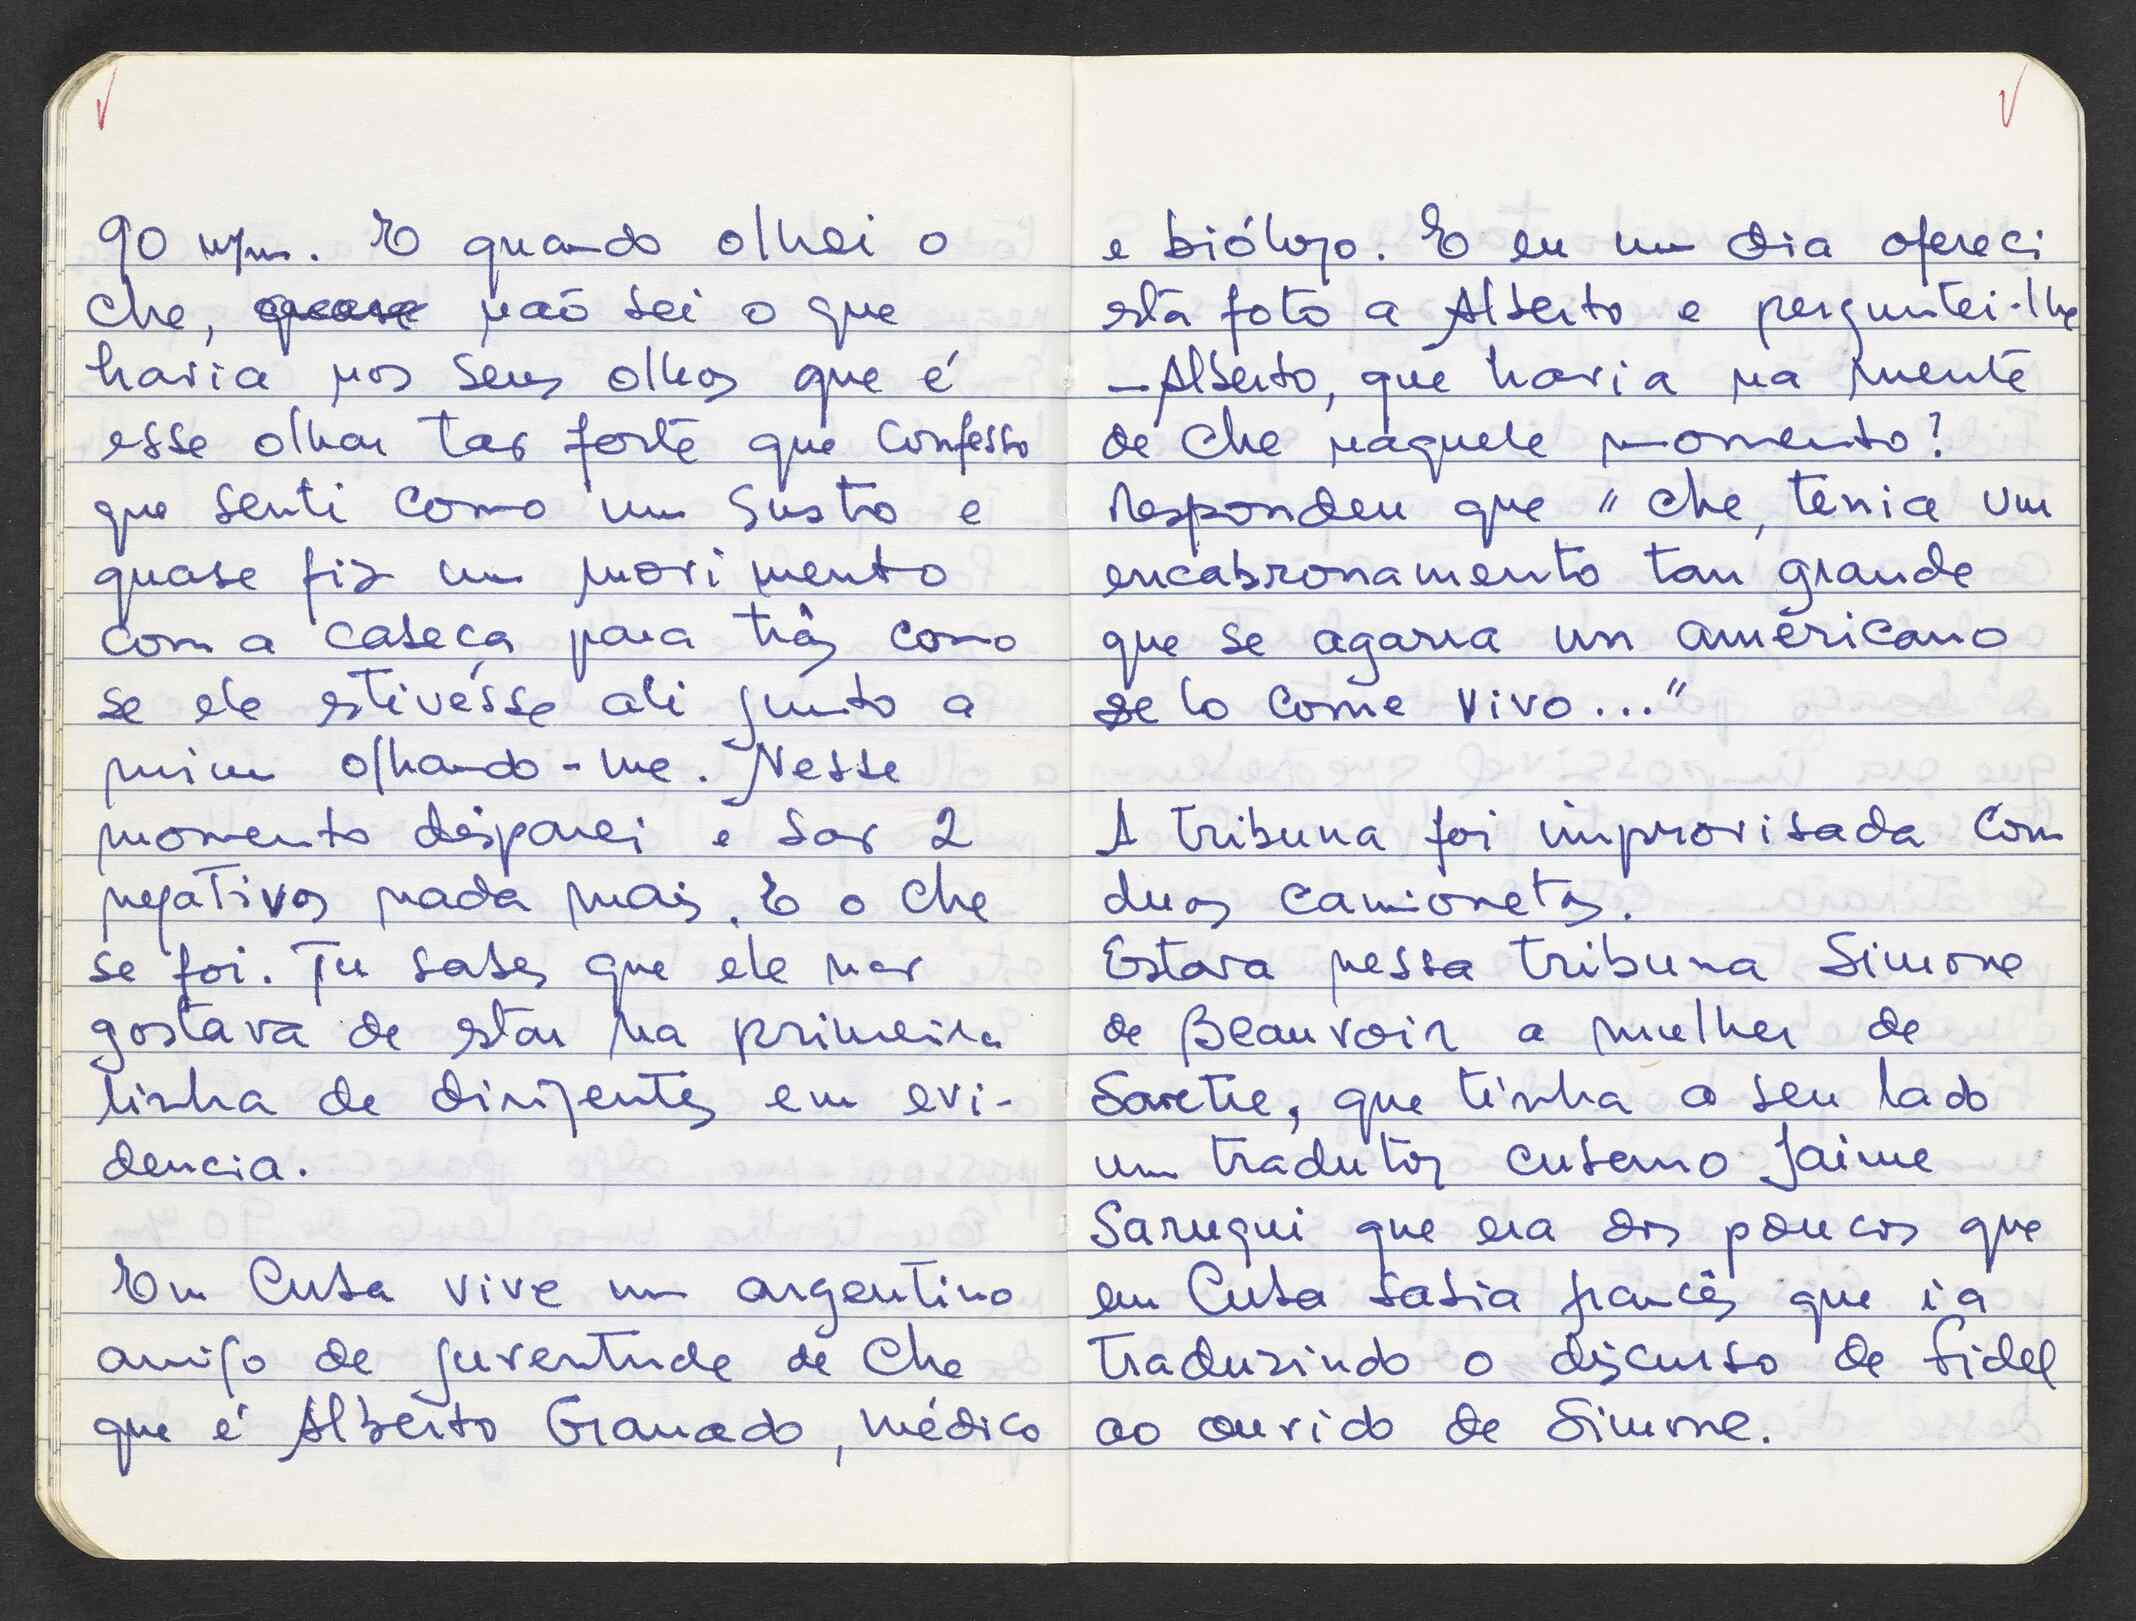 90 m/m. E quando olhei o
Che, quase não sei o que
havia nos seus olhos que é
esse olhar tão forte que confesso
que senti como um susto e
quase fiz um movimento
com a cabeça para trás como
se ele estivésse ali junto a
mim olhando-me. Nesse
momento disparei e são 2
negativos nada mais. E o Che
se foi. Tu sabes que ele não
gostava de estar na primeira
linha de dirigentes em evi-
dencia.
Em Cuba vive um argentino
amigo de juventude de Che
que é Alberto Granado, médico
e biólogo. E eu um dia ofereci
esta foto a Alberto e perguntei-lhe
– Alberto, que havia na mente
de Che naquele momento?
respondeu que "Che, tenia um
encabronamento tan grande
que se agarra un americano
se lo come vivo..."
A tribuna foi improvisada com
duas camionetas.
Estava nessa tribuna Simone
de Beauvoir a mulher de
Sartre, que tinha a seu lado
um tradutor cubano Jaime
Sarugui que era dos poucos que
em Cuba sabia francês que ia
traduzindo o discurso de Fidel
ao ouvido de Simone.